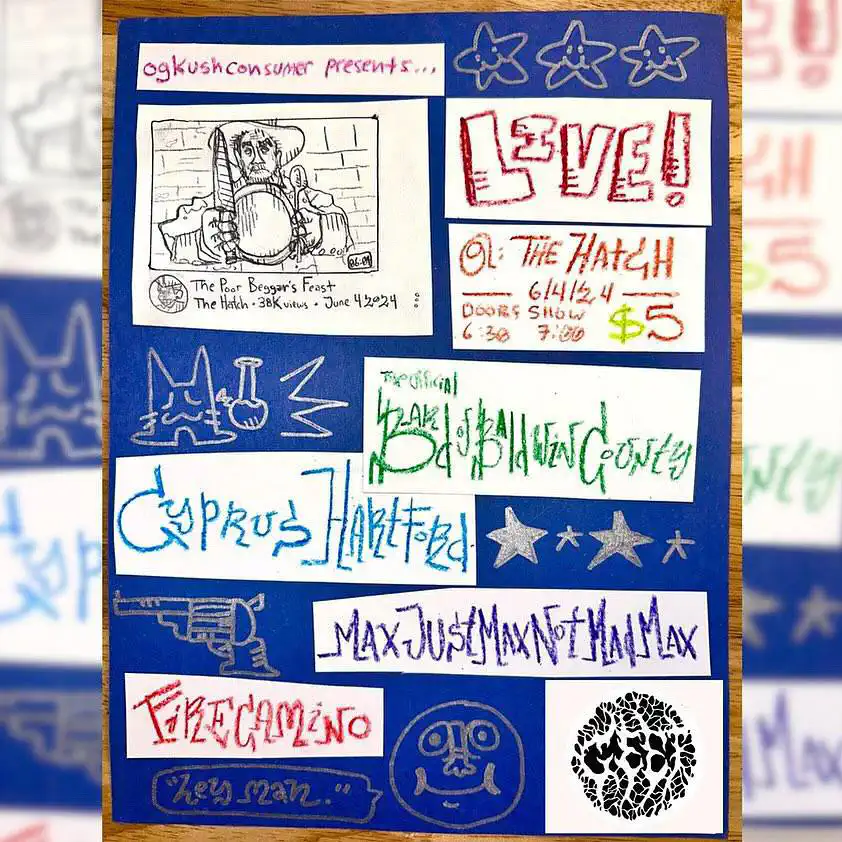 ogkushconsumer presents....
LIVE!
06:04
The Poor Beggar's Feast
The Hatch • 38K views • June 4 2024
@: THE HATCH
6/4/24
DOORS SHOW
6:30 7:00
$5
The Official
Bard of Baldwin County
Cyprus Hartford
MaxJustMaxNotMadMax
FIRECAMINO
"hey man."